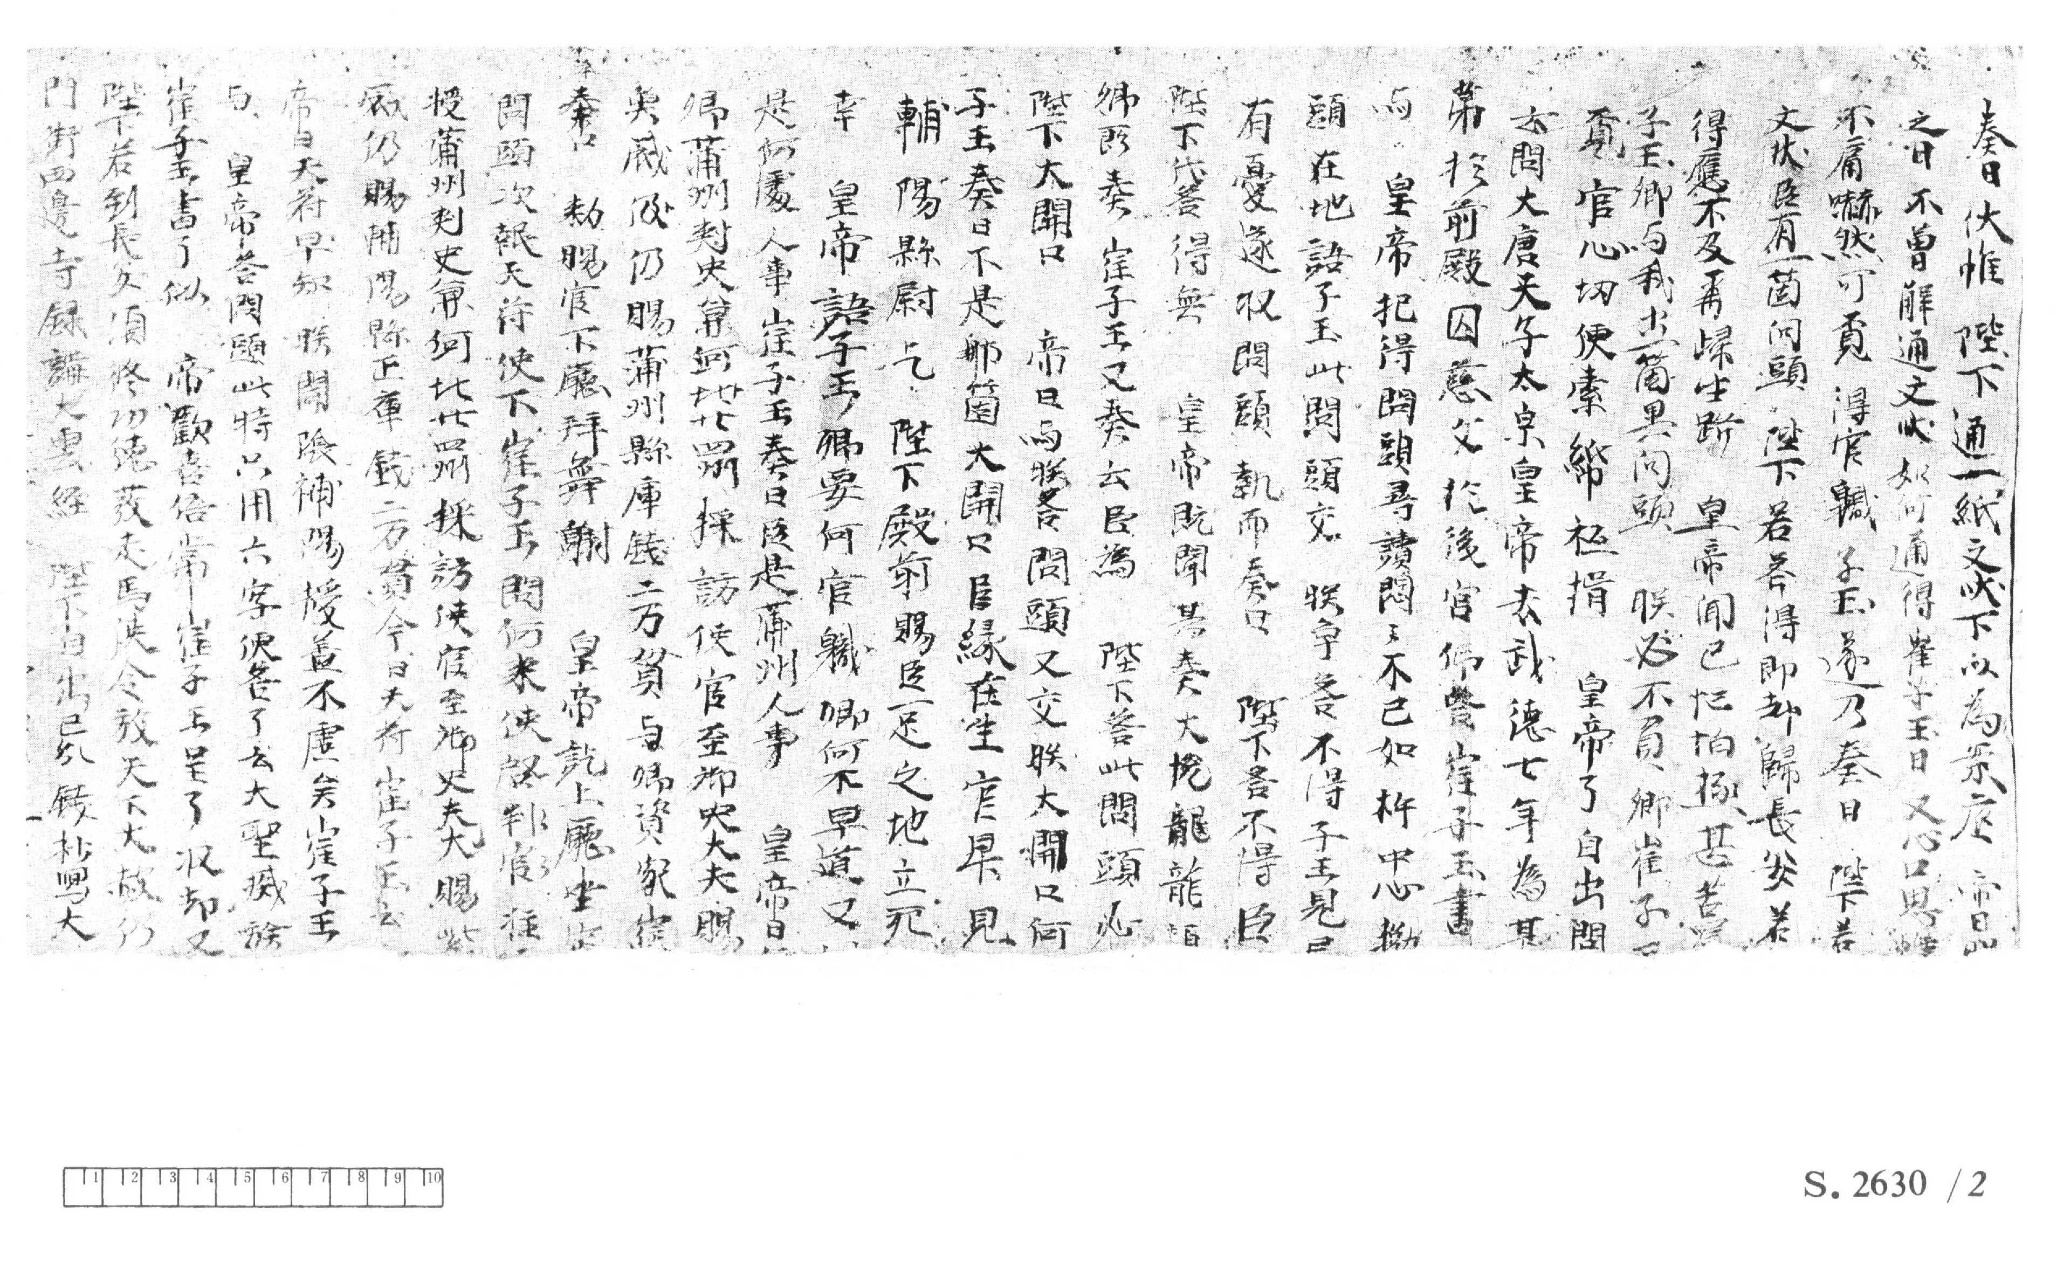 奏曰伏惟　陛下通一紙文狀下以為案在　帝曰
之日不曾解通文狀如何通得崔子玉曰　又心口思惟
不痛嚇然可覓　得官軄　子玉遂乃奏曰　陛下若
文狀臣有一箇问頭　陛下若荅得即却歸長安若
得應不及再歸生路　皇帝聞已忙怕極甚苦
子玉卿与我出一箇異问頭　朕必不負卿崔子
貪官心切便索紙祗揖　皇帝了自出問
云問大唐天子太宗皇帝去武德七年為甚
弟於前殿囚慈父於後宮仰荅崔子玉書
与　皇帝把得問頭尋讀悶〻不已如杵中心
頭在地語子玉此問頭交　朕爭荅不得子玉見
有憂遂收問頭執而奏曰　陛下荅不得臣
陛下代荅得無　皇帝既聞其奏大悅龍
卿所奏　崔子玉又奏云臣為　陛下荅此問頭必
陛下大開口　帝曰与朕荅問頭又交朕大開口何
子玉奏曰不是那箇大開口臣緣在生官卑見
輔陽縣尉乞　陛下殿前賜臣一足之地立死
幸　皇帝語子玉卿要何官軄卿何不早道又
是何處人事崔子玉奏曰臣是蒲州人事　皇帝曰
卿蒲州刺史兼河北廿四州採訪使官至御史大夫賜
奧威及仍賜蒲州縣庫錢二万貫与卿資家崔
奏曰　勑賜官下廳拜舞謝　皇帝訖上廳坐
問頭次報天符使下崔子玉問何來使啟判官
授蒲州刺史兼河北廿四州採訪使官至御史大夫賜紫
威仍賜輔陽縣正庫錢二万貫今日天符崔子玉云
帝曰天符早知　朕聞陰補陽授蓋不虛矣崔子玉
与　皇帝荅問頭此時只用六字便荅了云大聖滅族
崔子玉書了似　帝歡喜倍常崔子玉呈了收却又
陛下若到長安須修功德發走馬使令放天下大赦仍
門街西邊寺錄講大雲經　陛下自出己分錢抄寫大
S. 2630 /2
1 2 3 4 5 6 7 8 9 10